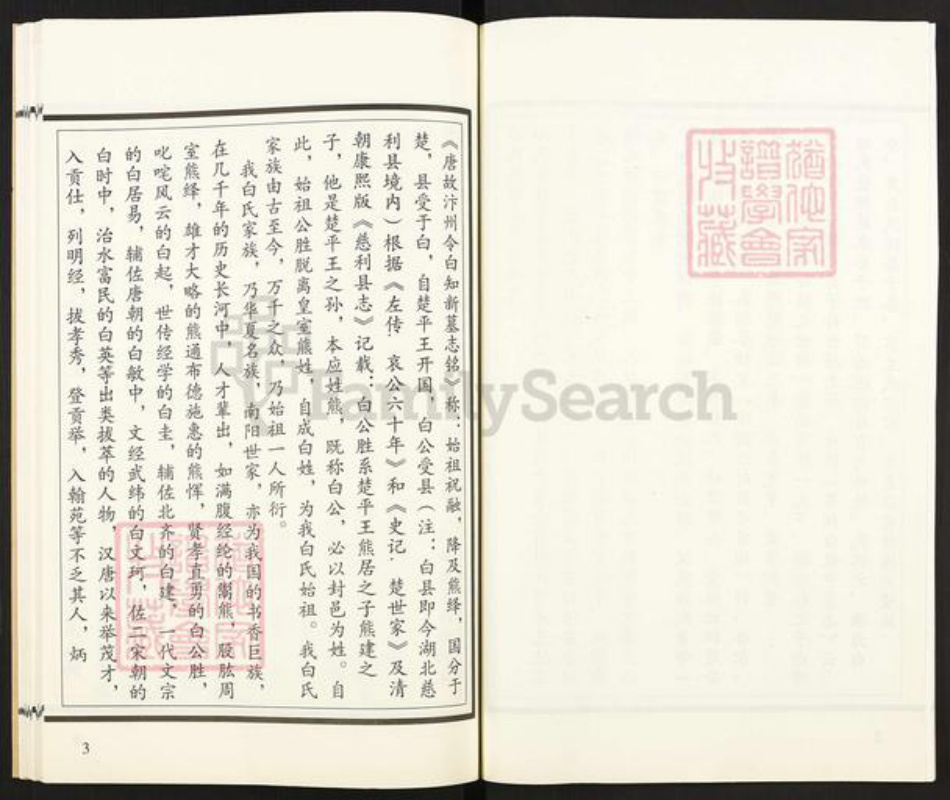 《唐故汴州令白知新墓志铭》称：始祖祝融，降及熊绎，国分于
楚，县受于白，自楚平王开国，白公受县（注：白县即今湖北慈
利县境内）根据《左传·哀公六十年》和《史记·楚世家》及清
朝康熙版《慈利县志》记载：白公胜系楚平王熊居之子熊建之
子，他是楚平王之孙，本应姓熊，既称白公，必以封邑为姓。自
此，始祖公胜脱离皇室熊姓，自成白姓，为我白氏始祖。我白氏
家族由古至今，万千之众，乃始祖一人所衍。
我白氏家族，乃华夏名族，南阳世家，亦为我国的书香巨族，
在几千年的历史长河中，人才辈出，如满腹经纶的鬻熊，股肱周
室熊绎，雄才大略的熊通布德施惠的熊恽，贤孝直勇的白公胜，
叱咤风云的白起，世传经学的白圭，辅佐北齐的白建，一代文宗
的白居易，辅佐唐朝的白敏中，文经武纬的白文珂，佐二宋朝的
白时中，治水富民的白英等出类拔萃的人物，汉唐以来举茂才，
入贡仕，列明经，拔孝秀，登贡举，入翰苑等不乏其人，炳
3
FamilySearch
猶他家
譜學會
收藏
猶他家
譜學會
收藏